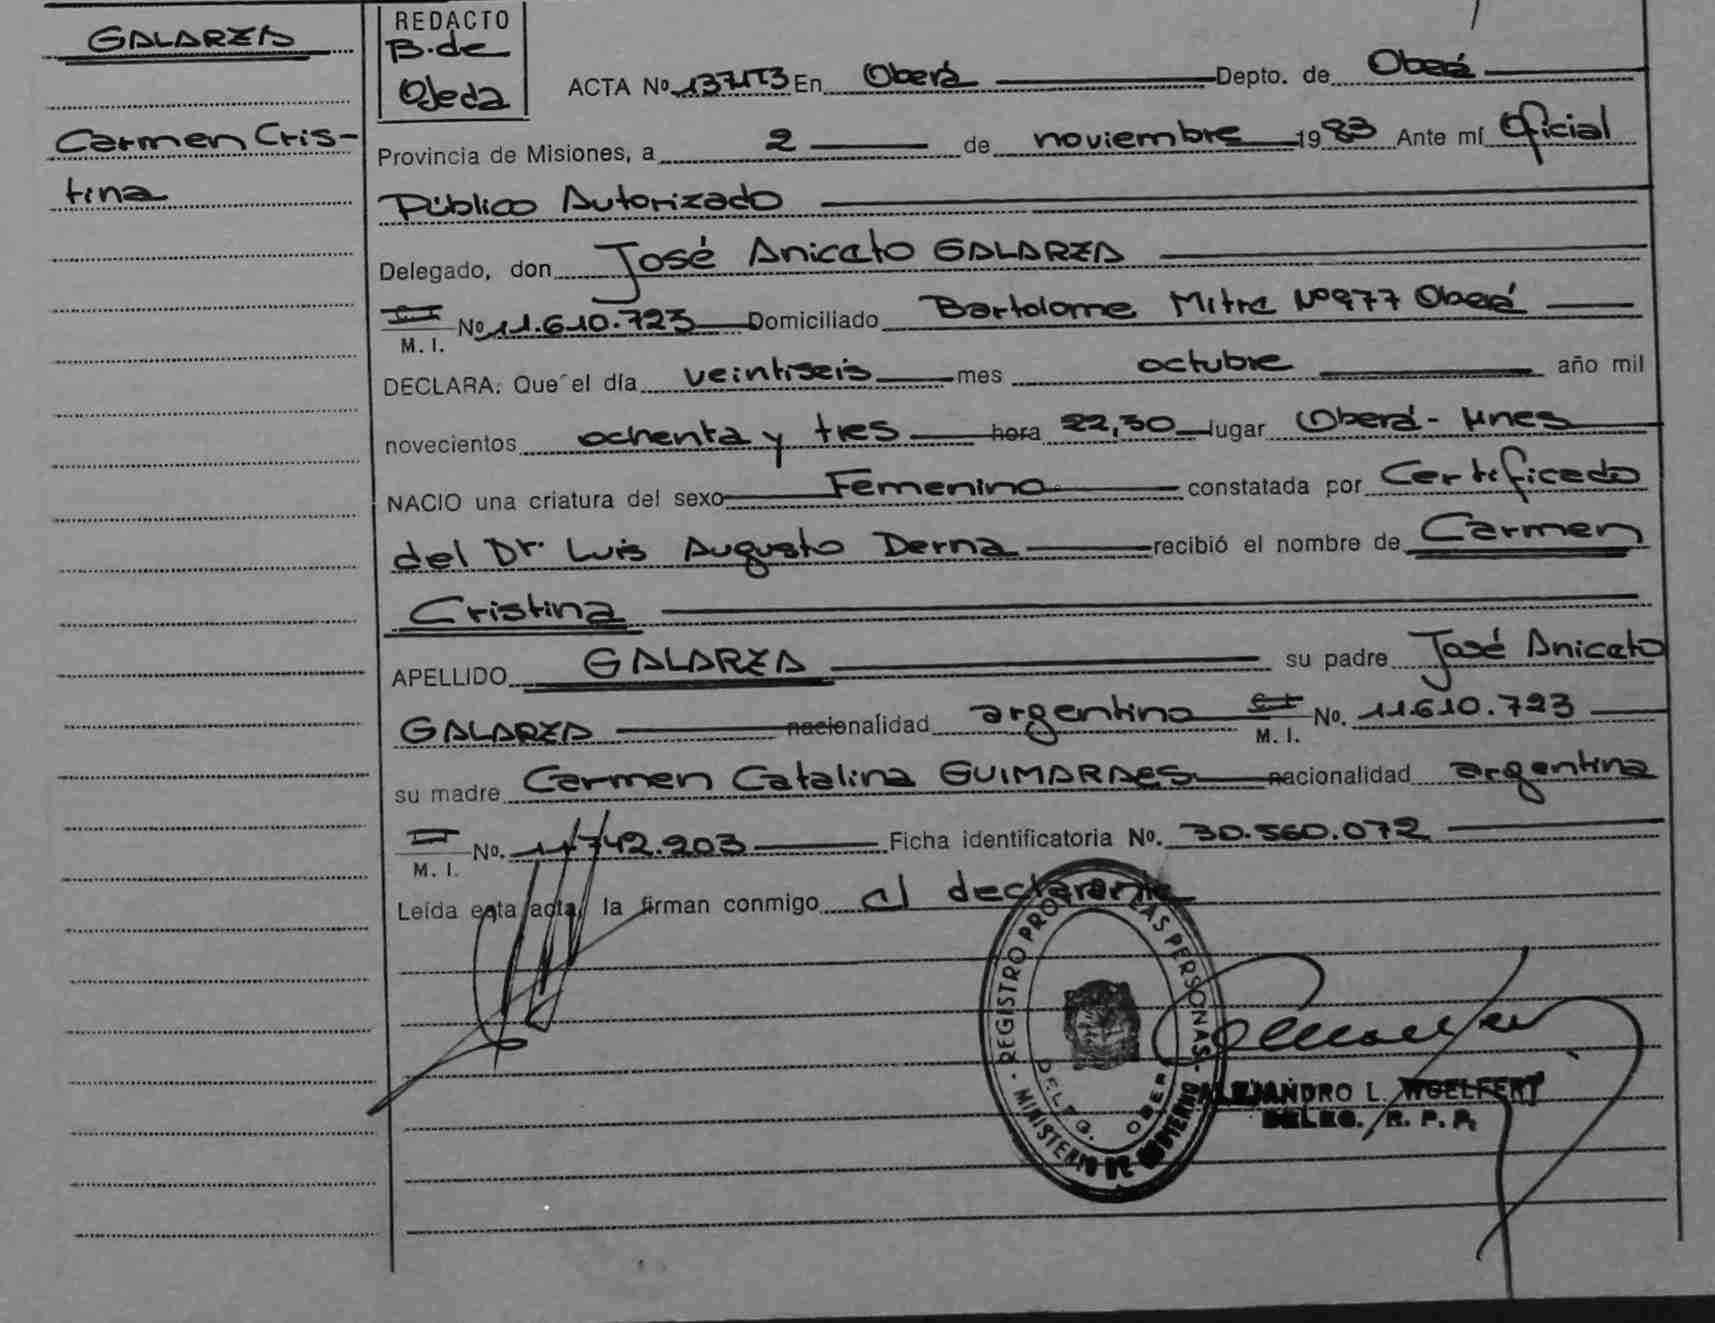 GALARZA
Carmen Cris-
tina
REDACTO
B. de
Ojeda
ACTA No 137 T3 En Oberá Depto. de Oberá
Provincia de Misiones, a 2 de noviembre 1983 Ante mí Oficial
Público Autorizado
Delegado, don José Anicato GALARZA
C.I. M. I. No 11.610.723 Domiciliado Bartolome Mitre Nº 977 Oberá
DECLARA: Que el día veintiseis mes octubre año mil
novecientos ochenta y tres hora 22,30 lugar Oberá - Mnes
NACIO una criatura del sexo Femenino constatada por Certificado
del Dr. Luis Augusto Derna recibió el nombre de Carmen
Cristina
APELLIDO GALARZA su padre José Anicato
GALARZA nacionalidad argentino C.I. M. I. No. 11.610.723
su madre Carmen Catalina GUIMARAES nacionalidad argentina
C.I. M. I. No. 11.742.203 Ficha identificatoria No. 30.560.072
Leída esta acta, la firman conmigo el declarante
REGISTRO PROV. LAS PERSONAS
MINISTERIO DE GOBIERNO
DELEG. OBERA
ALEJANDRO L. WOELFERT
DELEG. R. P. P.